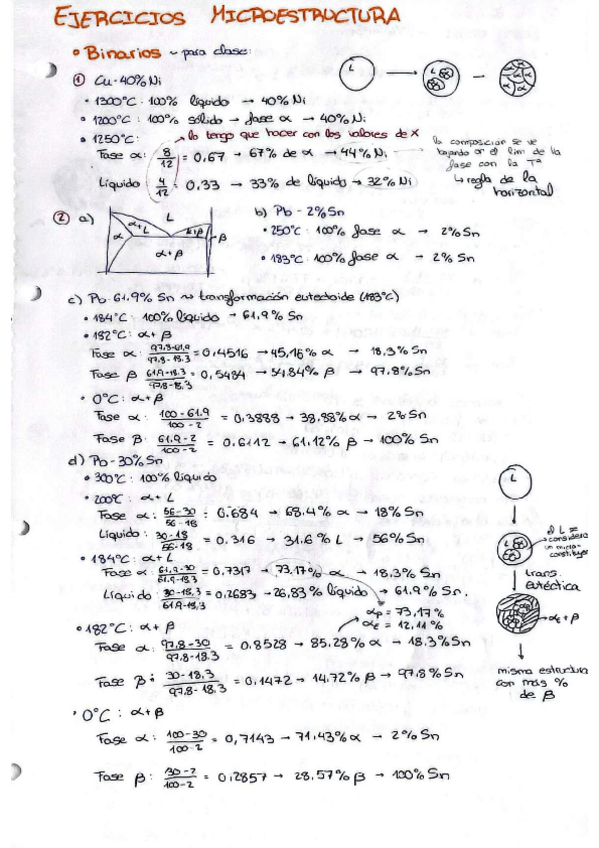 EJERCICIOS MICROESTRUCTURA
• Binarios ~ para clase:
① Cu-40%Ni
• 1300°C: 100% líquido → 40% Ni
• 1200°C: 100% sólido → fase α → 40% Ni
• 1250°C: → lo tengo que hacer con los valores de X
Fase α: 8/12 = 0,67 → 67% de α → 44% Ni
Líquido: 4/12 = 0,33 → 33% de líquido → 32% Ni
la composición se ve
bajando or el lim de la
fase con la Tª
↳ regla de la
horizontal
L
L
α α α
② a)
L
α+L
α
α+β
β
b) Pb - 2% Sn
• 250°C: 100% fase α → 2% Sn
• 183°C: 100% fase α → 2% Sn
c) Pb-61.9% Sn ~> transformación eutectoide (183°C)
• 184°C: 100% líquido → 61.9% Sn
• 182°C: α+β
Fase α: 97.8-61.9/97.8-18.3 = 0,4516 → 45,16% α → 18.3% Sn
Fase β 61.9-18.3/97.8-18.3 = 0,5484 → 54.84% β → 97.8% Sn
• 0°C: α+β
Fase α: 100-61.9/100-2 = 0.3888 → 38.88% α → 2% Sn
Fase β: 61.9-2/100-2 = 0.6112 → 61.12% β → 100% Sn
d) Pb-30% Sn
• 300°C: 100% líquido
• 200°C: α+L
Fase α: 56-30/56-18 = 0.684 → 68.4% α → 18% Sn
Líquido: 30-18/56-18 = 0.316 → 31.6% L → 56% Sn
• 184°C: α+L
Fase α: 61.9-30/61.9-18.3 = 0,7317 → 73,17% α → 18.3% Sn
Líquido: 30-18.3/61.9-18.3 = 0.2683 → 26,83% líquido → 61.9% Sn.
αp = 73,17%
αe = 12,11%
• 182°C: α+β
Fase α: 97.8-30/97.8-18.3 = 0.8528 → 85.28% α → 18.3% Sn
Fase β: 30-18.3/97.8-18.3 = 0.1472 → 14.72% β → 97.8% Sn
• 0°C: α+β
Fase α: 100-30/100-2 = 0,7143 → 71.43% α → 2% Sn
Fase β: 30-2/100-2 = 0,2857 → 28.57% β → 100% Sn
L
el L se
considera
un micro-
trans.
eutéctica
α+β
misma estructura
con más %
de β